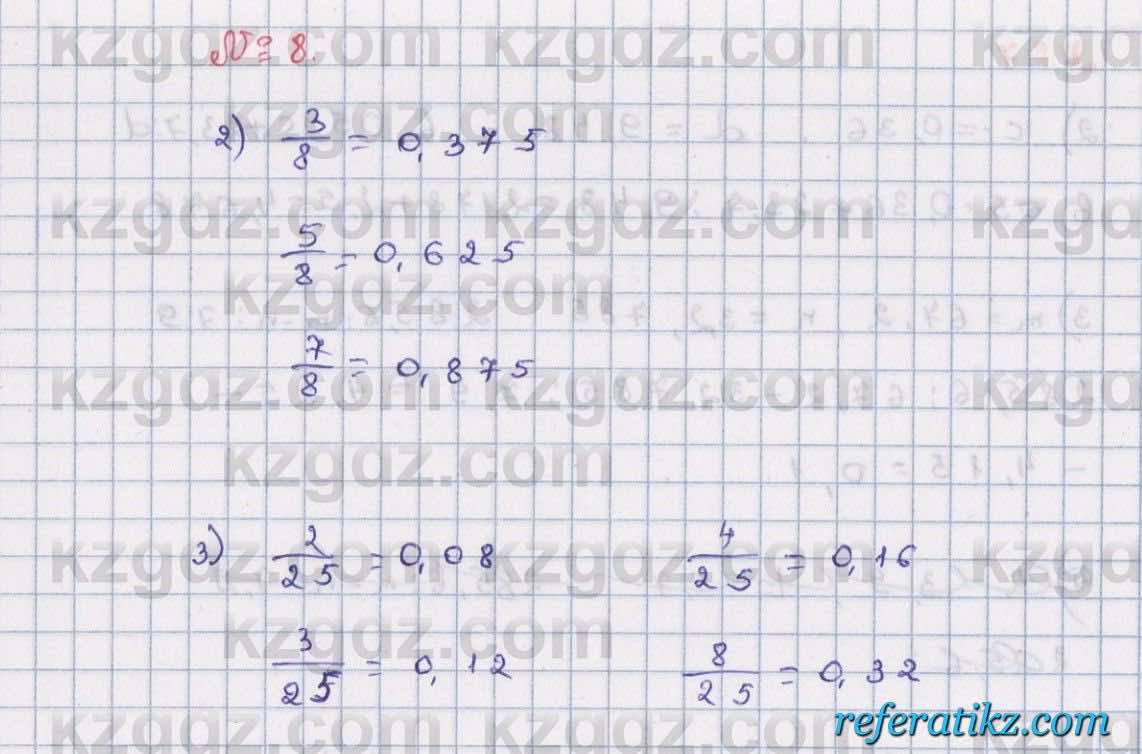 № 8.
2) 3/8 = 0,375
5/8 = 0,625
7/8 = 0,875
3) 2/25 = 0,08 4/25 = 0,16
3/25 = 0,12 8/25 = 0,32
kzgdz.com
referatikz.com